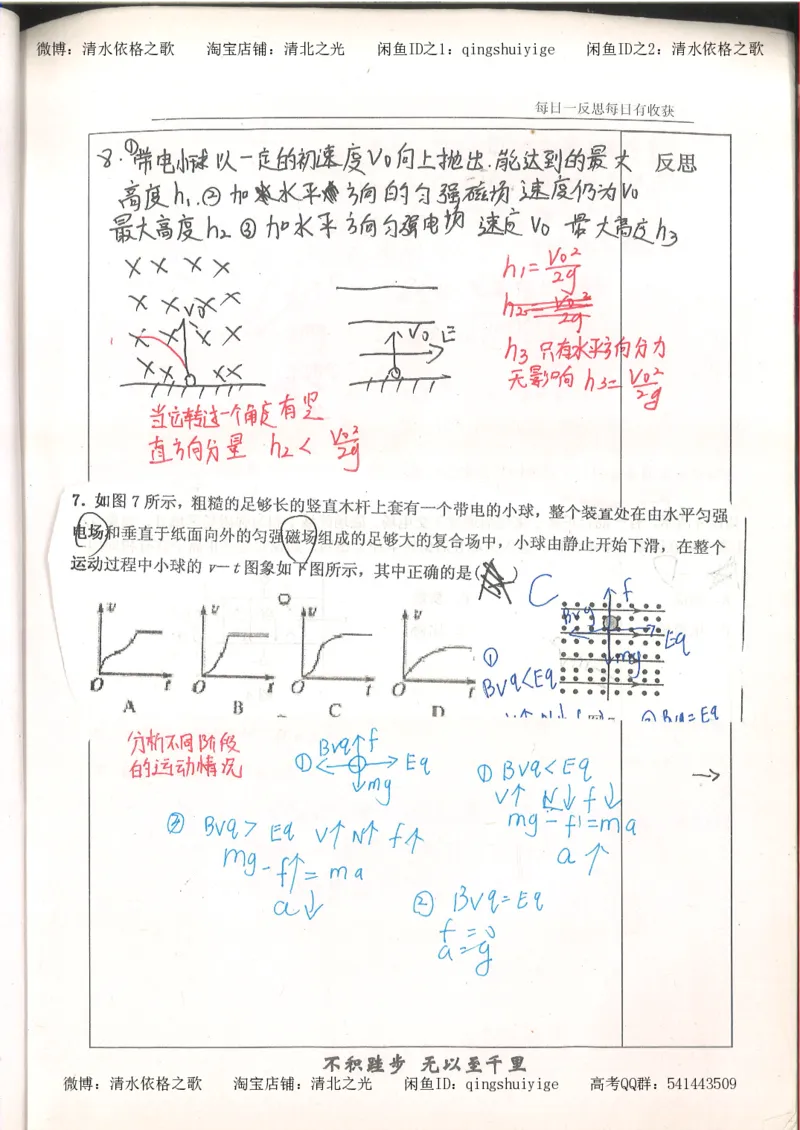 微博：清水依格之歌 淘宝店铺：清北之光 闲鱼ID之1：qingshuiyige 闲鱼ID之2：清水依格之歌
每日一反思每日有收获
8.①带电小球以一定的初速度V0向上抛出.能达到的最大
反思
高度h1.②加水平方向的匀强磁场 速度仍为V0
最大高度h2 ③加水平方向匀强电场 速度V0 最大高度h3
V0
V0 E
h1=V0²/2g
h2=V0²/2g
h3 只有水平方向分力
无影响 h3=V0²/2g
当它转过一个角度有竖
直方向分量 h2<V0²/2g
7．如图7所示，粗糙的足够长的竖直木杆上套有一个带电的小球，整个装置处在由水平匀强
电场和垂直于纸面向外的匀强磁场组成的足够大的复合场中，小球由静止开始下滑，在整个
运动过程中小球的 v—t 图象如下图所示，其中正确的是( )
C
f
Bvq
Eq
mg
v v v v
O t O t O t O t
A B C D
①
BVq<Eq
② BVq=Eq
分析不同阶段
的运动情况
① Bvq f Eq
mg
① BVq<Eq
V↑ N↓ f↓
mg-f=ma
a↑
③ BVq> Eq V↑ N↑ f↑
mg-f↑=ma
a↓
② BVq=Eq
f=0
a=g
不积跬步 无以至千里
微博：清水依格之歌 淘宝店铺：清北之光 闲鱼ID：qingshuiyige 高考QQ群：541443509